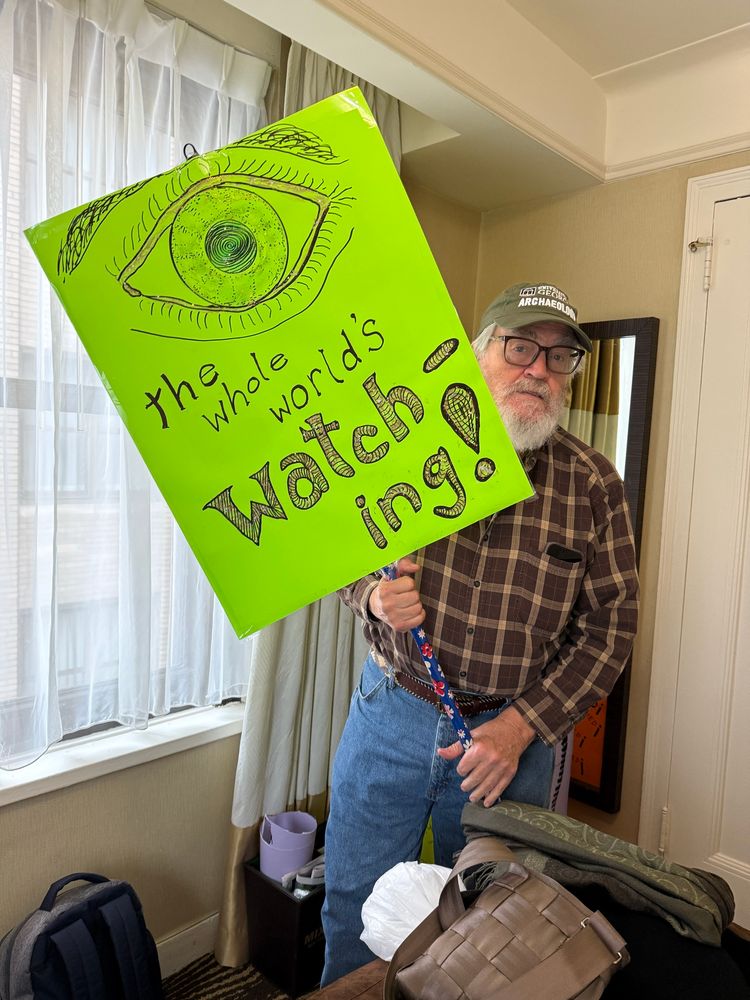 the
whole
world's
Watch-
ing!
GEORGIA
ARCHAEOLOGY